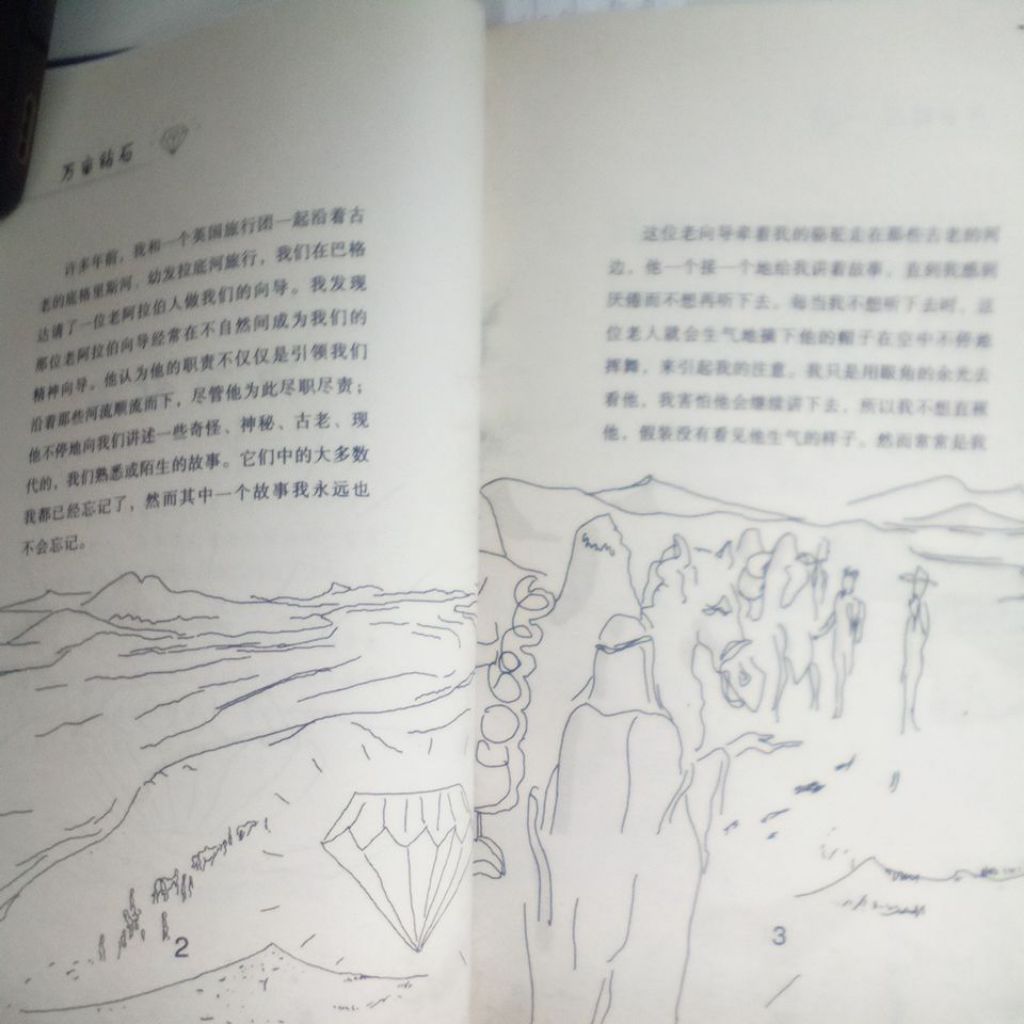 万亩钻石
许多年前，我和一个英国旅行团一起沿着古
老的底格里斯河、幼发拉底河旅行，我们在巴格
达请了一位老阿拉伯人做我们的向导。我发现
那位老阿拉伯向导经常在不自然间成为我们的
精神向导。他认为他的职责不仅仅是引领我们
沿着那些河流顺流而下，尽管他为此尽职尽责；
他不停地向我们讲述一些奇怪、神秘、古老、现
代的，我们熟悉或陌生的故事。它们中的大多数
我都已经忘记了，然而其中一个故事我永远也
不会忘记。
2
这位老向导牵着我的骆驼走在那些古老的河
边，他一个接一个地给我讲着故事，直到我感到
厌倦而不想再听下去。每当我不想听下去时，这
位老人就会生气地摘下他的帽子在空中不停地
挥舞，来引起我的注意。我只是用眼角的余光去
看他，我害怕他会继续讲下去，所以我不想直视
他，假装没有看见他生气的样子。然而常常是我
3